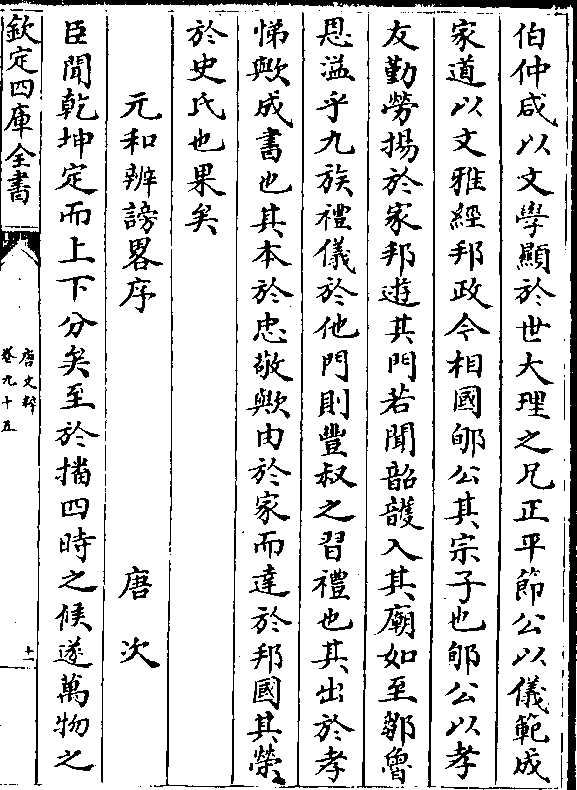 伯仲咸以文學顯於世大理之兄正平節公以儀範成
家道以文雅經邦政今相國郇公其宗子也郇公以孝
友勤勞揚於家邦遊其門若聞韶頀入其廟如至鄒魯
恩溢乎九族禮儀於他門則豐叔之習禮也其出於孝
悌歟成書也其本於忠敬歟由於家而達於邦國其榮
於史氏也果矣
元和辨謗畧序 唐次
臣聞乾坤定而上下分矣至於播四時之候遂萬物之
欽定四庫全書
唐文粹
卷九十五
十一